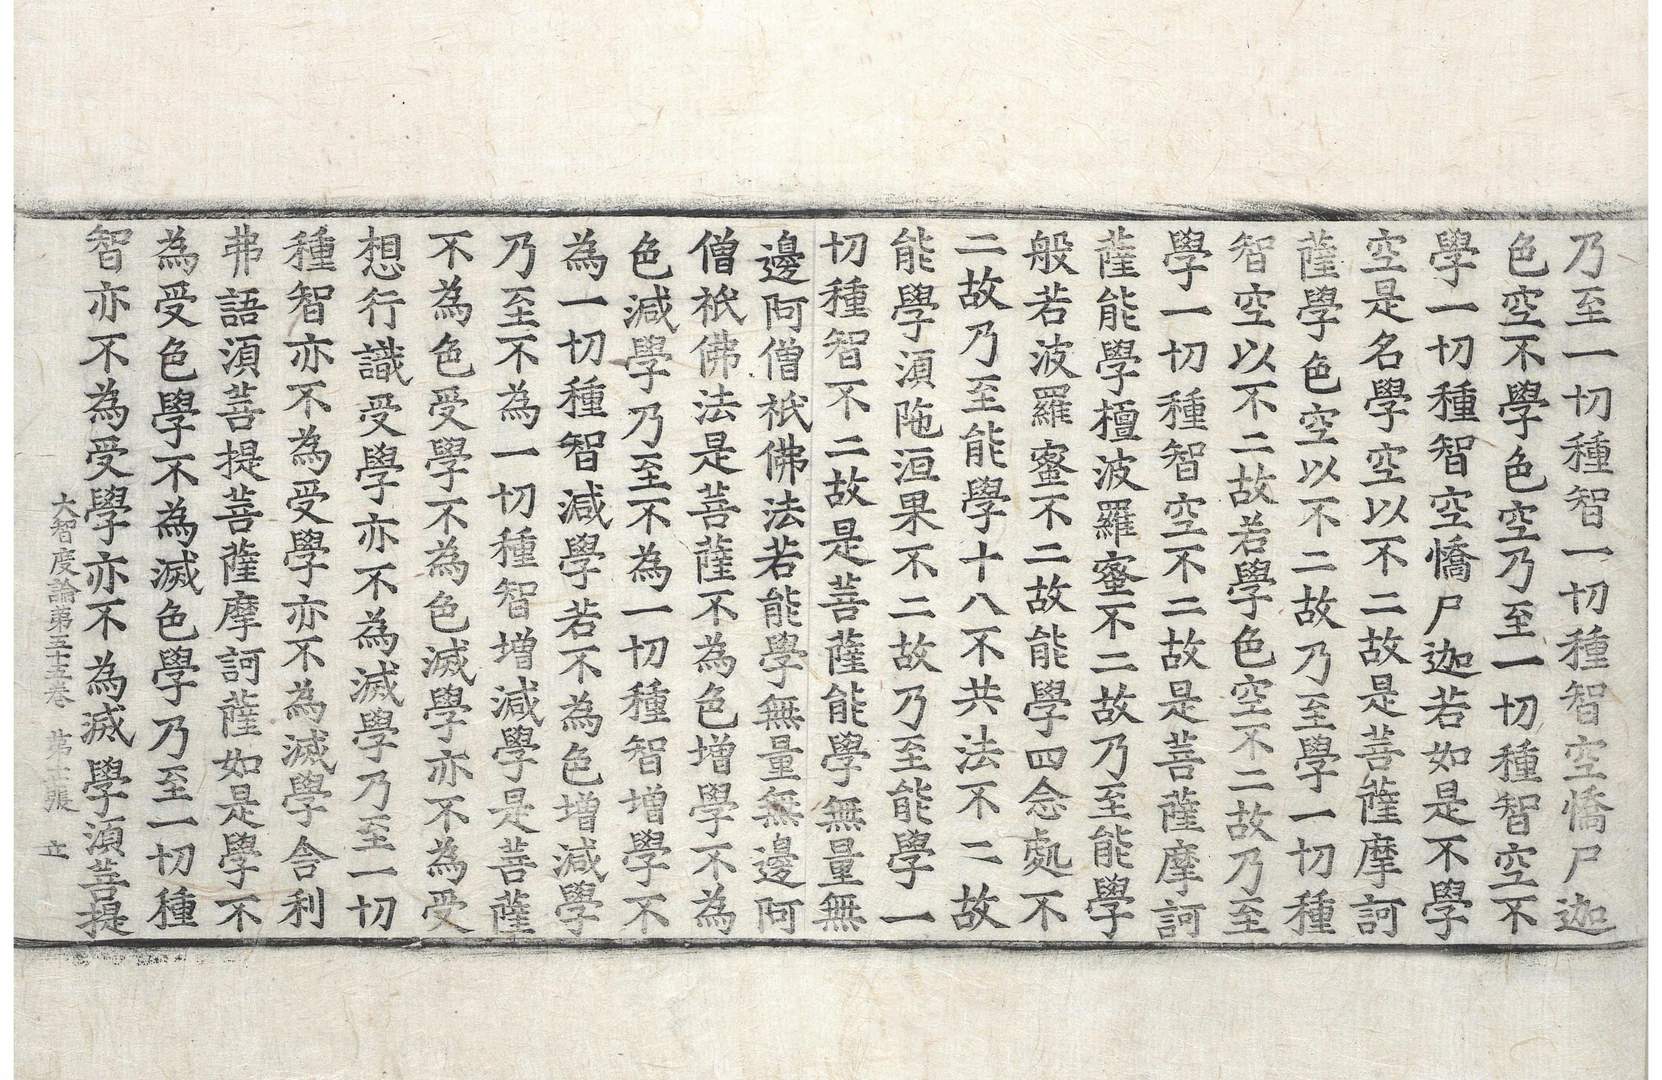 乃至一切種智一切種智空憍尸迦
色空不學色空乃至一切種智空不
學一切種智空憍尸迦若如是不學
空是名學空以不二故是菩薩摩訶
薩學色空以不二故乃至學一切種
智空以不二故若學色空不二故乃至
學一切種智空不二故是菩薩摩訶
薩能學檀波羅蜜不二故乃至能學
般若波羅蜜不二故能學四念處不
二故乃至能學十八不共法不二故
能學須陁洹果不二故乃至能學一
切種智不二故是菩薩能學無量無
邊阿僧祇佛法若能學無量無邊阿
僧祇佛法是菩薩不為色增學不為
色減學乃至不為一切種智增學不
為一切種智減學若不為色增減學
乃至不為一切種智增減學是菩薩
不為色受學不為色滅學亦不為受
想行識受學亦不為滅學乃至一切
種智亦不為受學亦不為滅學舍利
弗語須菩提菩薩摩訶薩如是學不
為受色學不為滅色學乃至一切種
智亦不為受學亦不為滅學須菩提
大智度論第五十五卷 第 張 立